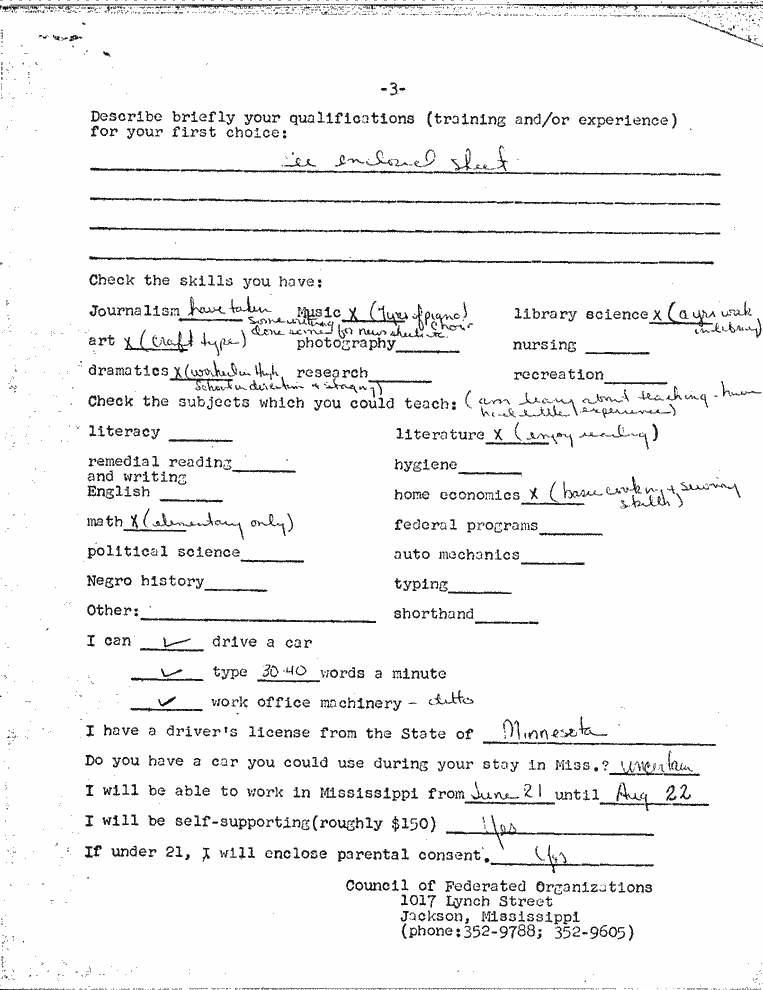 -3-
Describe briefly your qualifications (training and/or experience)
for your first choice:
see enclosed sheet
Check the skills you have:
Journalism have taken Music X (7yrs of piano) library science X (2 yrs work
some writing choir in library)
done some for news sheet etc.
art X (craft type) photography nursing
dramatics X (worked in High research recreation
School in direction + staging)
Check the subjects which you could teach: (am leary about teaching - have
had little experience)
literacy literature X (enjoy reading)
remedial reading hygiene
and writing
English home economics X (basic cooking + sewing
skills)
math X (elementary only) federal programs
political science auto mechanics
Negro history typing
Other: shorthand
I can ✓ drive a car
✓ type 30-40 words a minute
✓ work office machinery - ditto
I have a driver's license from the State of Minnesota
Do you have a car you could use during your stay in Miss.? uncertain
I will be able to work in Mississippi from June 21 until Aug 22
I will be self-supporting(roughly $150) Yes
If under 21, I will enclose parental consent. Yes
Council of Federated Organizations
1017 Lynch Street
Jackson, Mississippi
(phone:352-9788; 352-9605)